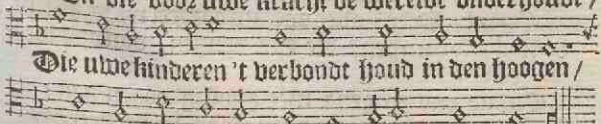 die door uwe kracht de werelde onderhoudt /
Die uwe kinderen 't verbondt houd in den hoogen /